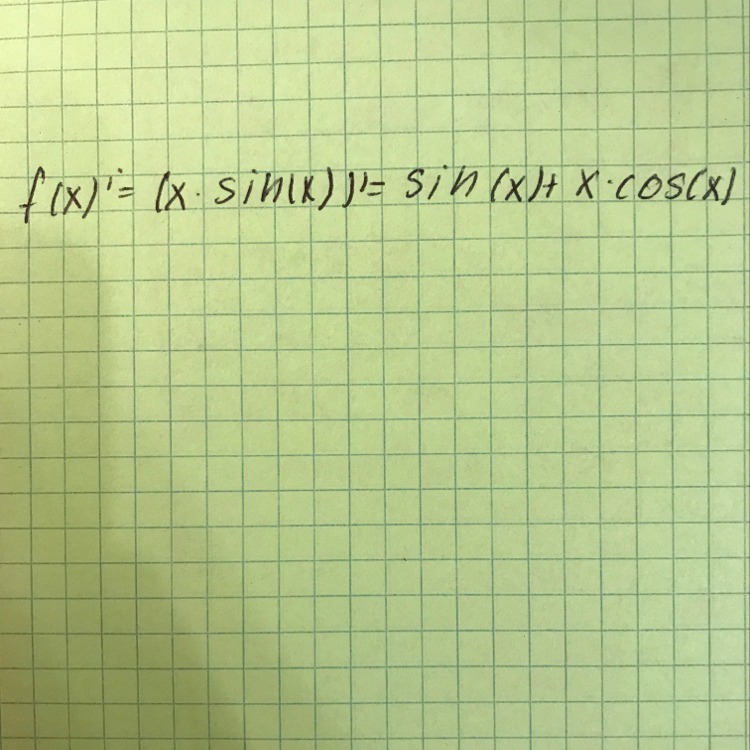 f(x)'= (x · sin(x))'= sin(x)+ x·cos(x)